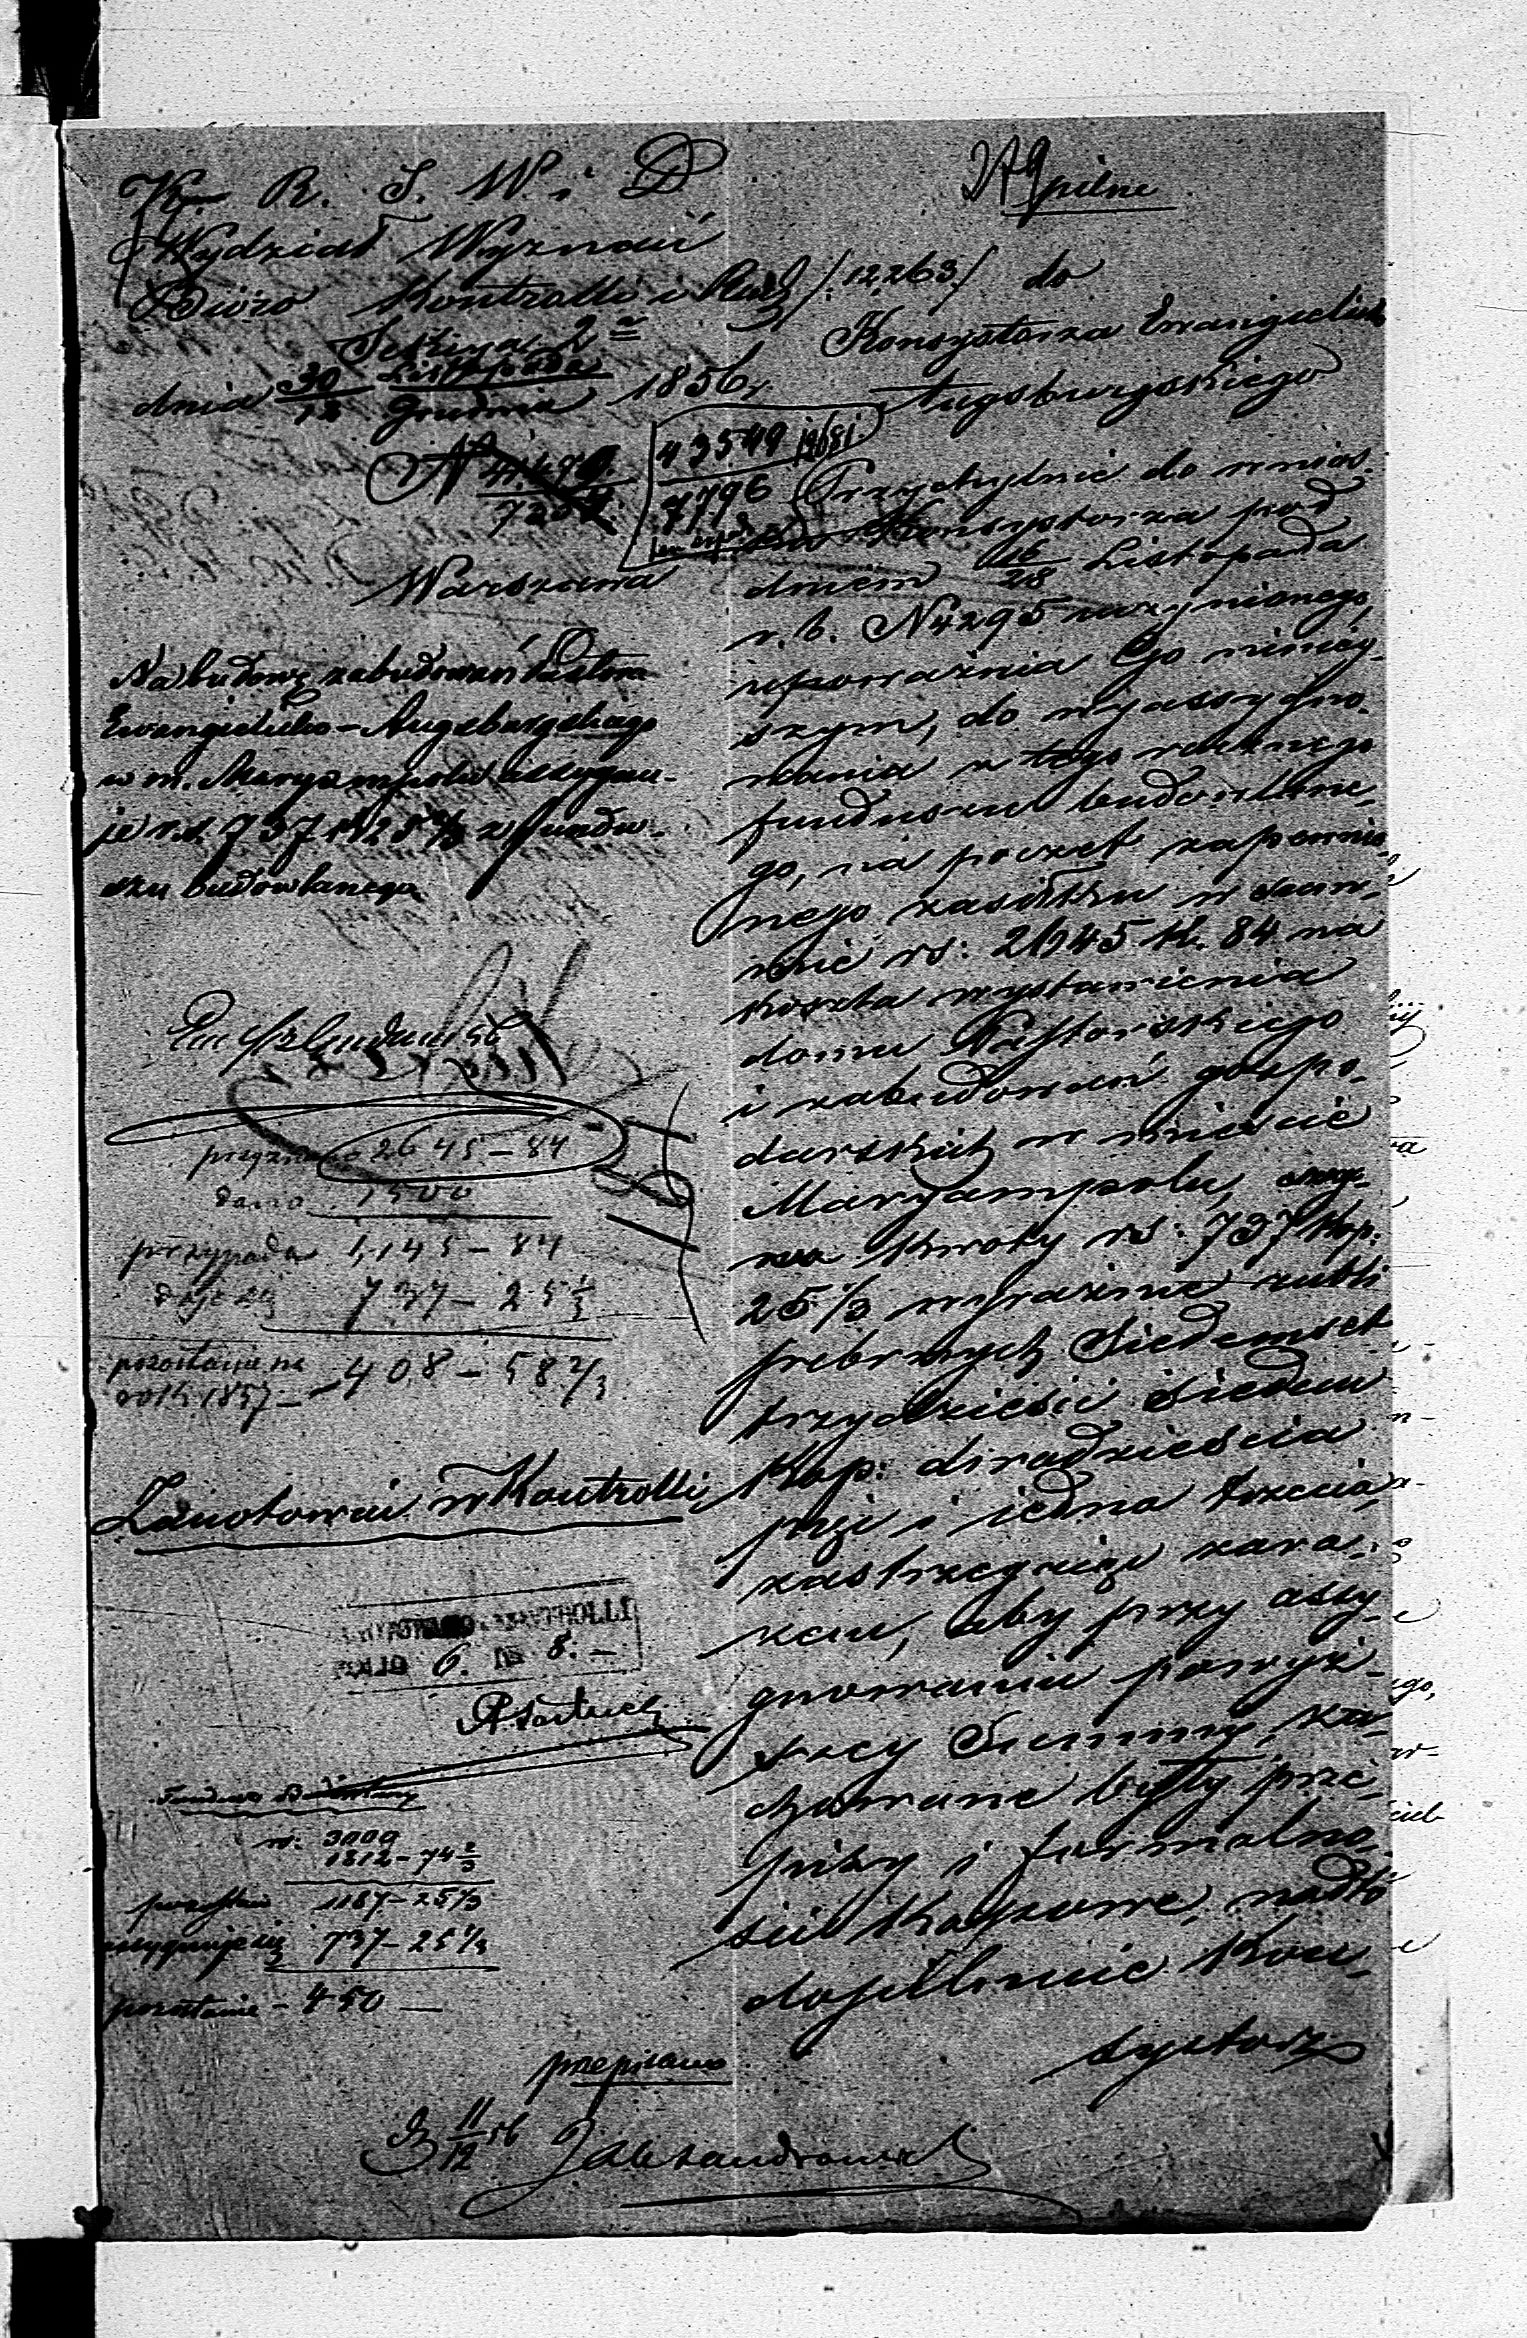 K. R. S. W. i D
Wydział Wyznań
Biuro Kontrolli i Rach /:12,263:/
Sekcya 2ª
dnia 30 Listopada / 12 Grudnia 1856 r.
N 41,490 / 7259
43549 / 7796
Warszawa
Na budowę zabudowań Pastora
Ewangielicko-Augsburgskiego
w m. Maryampolu assygnu-
je r.s. 737 k 25 1/3 z fundu-
szu budowlanego
przyznano 2645 - 84
dano 1500
przypada 1,145 - 84
daje się 737 - 25 1/3
pozostaje na
rok 1857 - 408 - 58 2/3
Zanotowano w Kontrolli
6. 8. -
Fundusz Budowlany
rs: 3000
1812 - 74 2/3
pozostaje 1187 - 25 1/3
assygnuje się 737 - 25 1/3
pozostanie - 450 -
przepisano
11/12 56
J Alexandrowicz
249 pilne
do
Konsystorza Ewangielick
Augsburgskiego
Przychylnie do wnios-
ku Konsystorza pod
dniem 16/28 Listopada
r. b. N 4295 uczynionego,
upoważnia Go niniej-
szym, do wyassygno-
wania z tego rocznego
funduszu budowlane-
go, na poczet zapewnio-
nego zasiłku w sum-
mie rs: 2645 k. 84 na
koszta wystawienia
domu Pastorskiego
i zabudowań gospo-
darskich w mieście
Maryampolu,
kwoty rs: 737 kop:
25 1/3 wyraźnie rubli
srebrnych Siedemset
trzydzieści siedem
kop: dwadzieścia
pięć i jedna trzecia,
zastrzegając zara-
zem, aby przy assy-
gnowaniu powyż-
szey Summy, za-
chowane były prze-
pisy i formalno-
ści Kassowe, nadto
dopilnuie Kon-
systorz